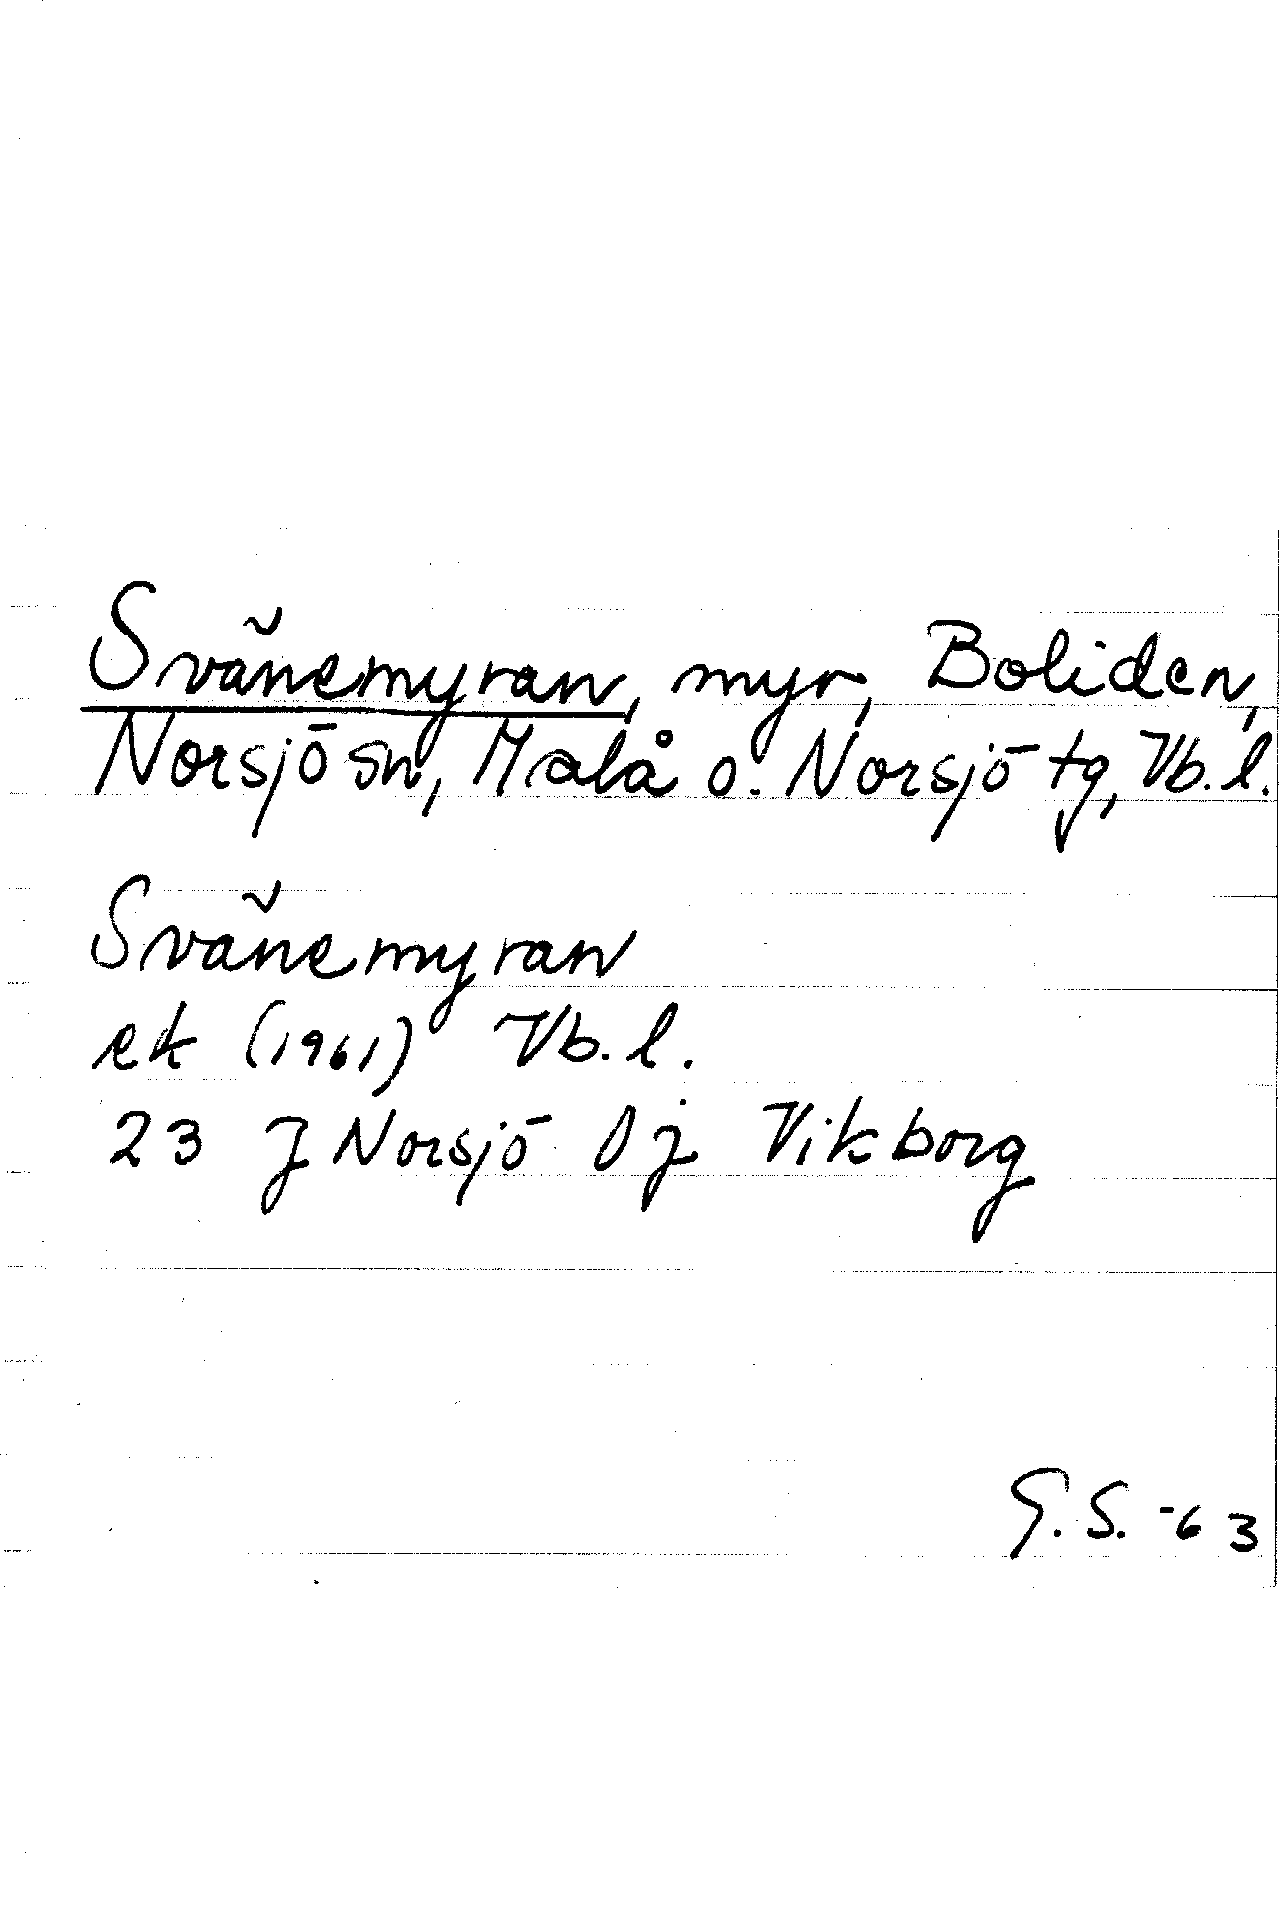 Svänemyran, myr, Boliden,
Norsjö sn, Malå o. Norsjö tg, Vb. l.
Svänemyran
ek (1961) Vb. l.
23 J Norsjö 0 j Vikborg
G. S. -63